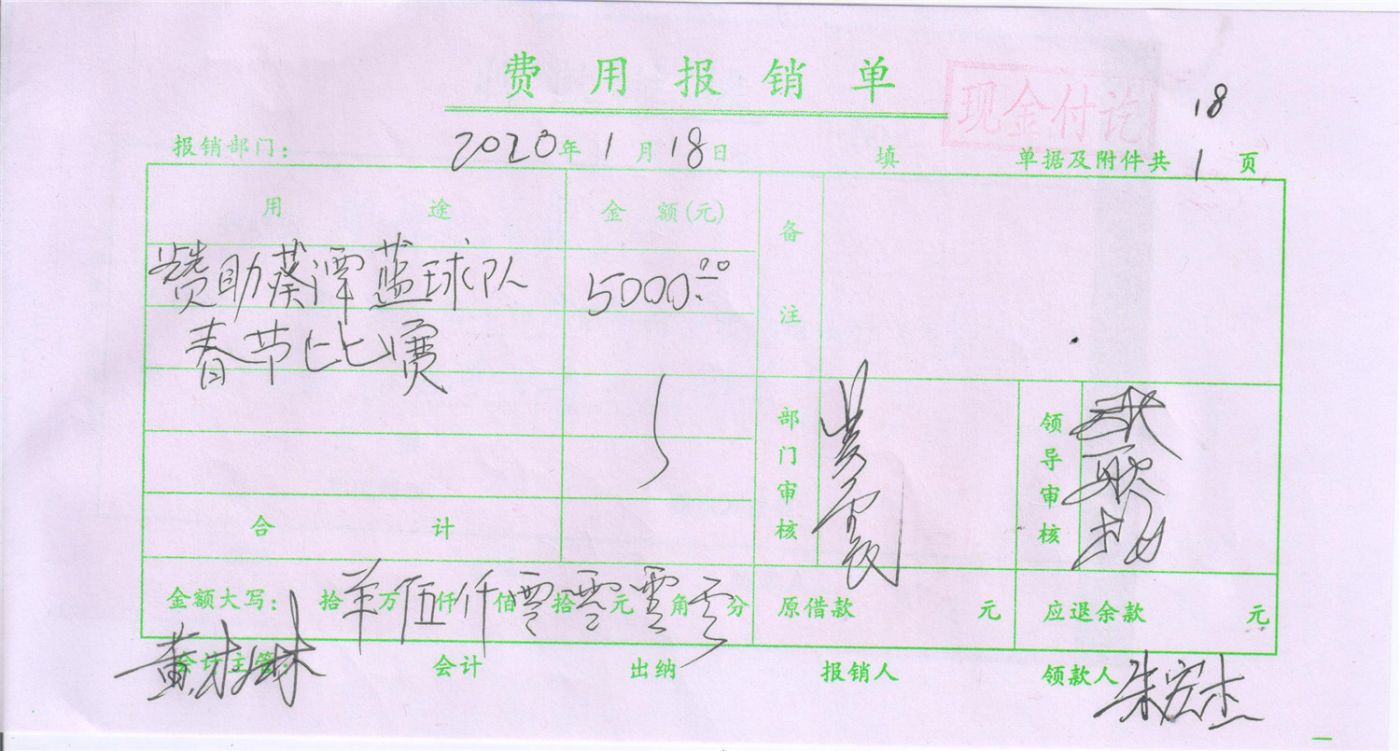 费用报销单
现金付讫
18
报销部门： 2020年1月18日 填 单据及附件共1页
用途 金额(元) 备注
赞助葵潭蓝球队 5000.00
春节比赛
部门审核 领导审核
合计
金额大写： 拾 万伍仟零佰零拾零元零角 分 原借款 元 应退余款 元
会计主管： 会计 出纳 报销人 领款人 朱宏杰